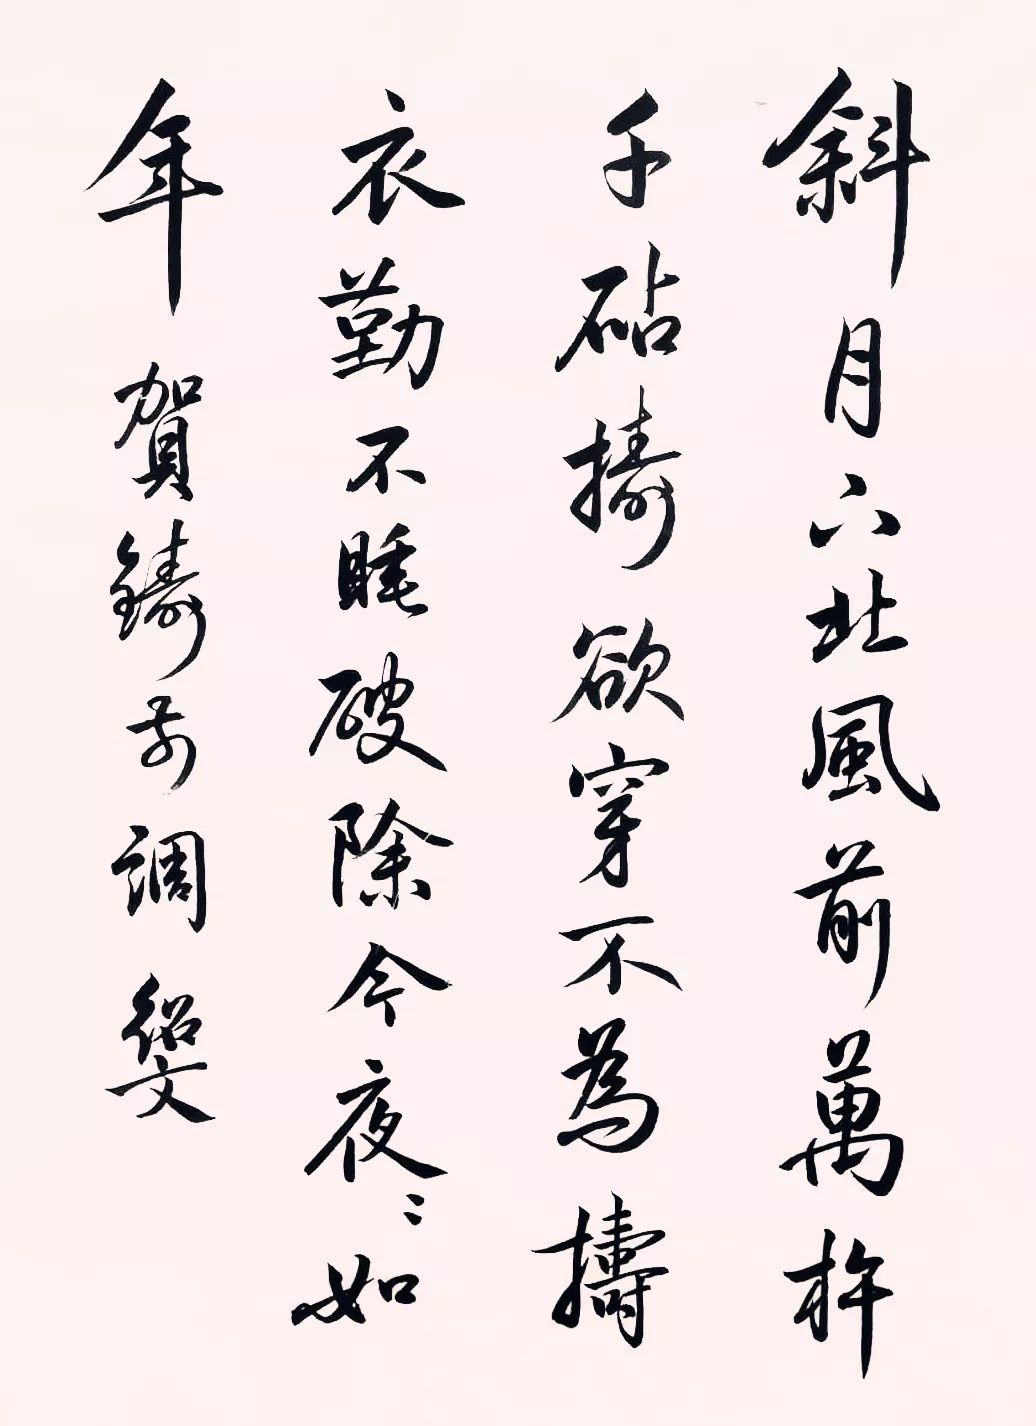 斜月下北風前萬杵
千砧擣欲穿不為擣
衣勤不睡破除今夜〻如
年 賀鑄古調 紹斐